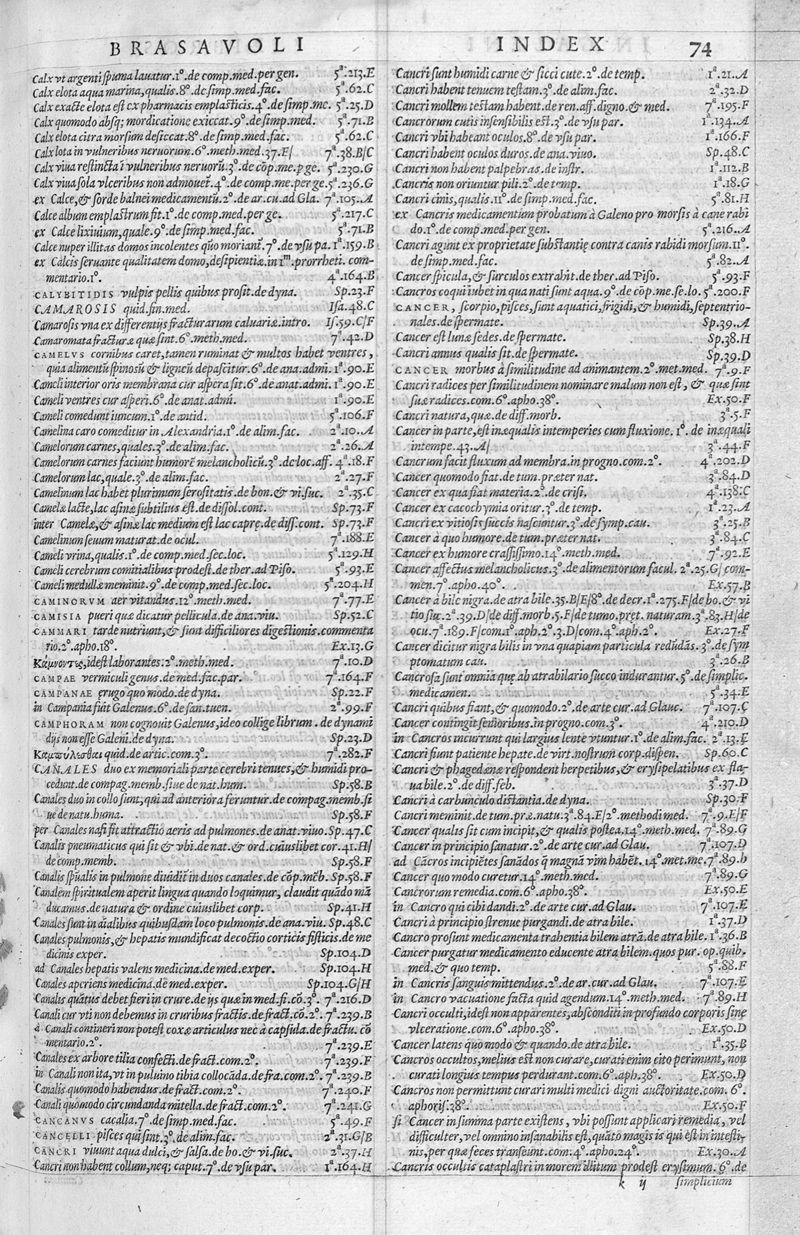 BRASAVOLI
Calx vt argenti spuma lauatur.1°.de comp.med.per gen. 5ª.213.E
Calx elota aqua marina, qualis.8°.de simp.med.fac. 5ª.62.C
Calx exacte elota est ex pharmacis emplasticis.4°.de simp.me. 5ª.25.D
Calx quomodo absq; mordicatione exiccat.9°.de simp.med. 5ª.71.B
Calx elota citra morsum desiccat.8°.de simp.med.fac. 5ª.62.C
Calx lota in vulneribus neruorum.6°.meth.med.37.E/ 7ª.38.B/C
Calx viua restincta ī vulneribus neruorū.3°.de cōp.me.p ge. 5ª.230.G
Calx viua sola vlceribus non admouet̄.4°.de comp.me.per ge.5ª.236.G
ex Calce,& sorde balnei medicamentū.2°.de ar.cu.ad Gla. 7ª.105.A
Calce album emplastrum fit.1°.de comp.med.per ge. 5ª.217.C
ex Calce lixiuium, quale.9°.de simp.med.fac. 5ª.71.B
Calce nuper illitas domos incolentes quo moriant̄.7°.de vsu pa.1ª.159.B
ex Calcis seruante qualitatem domo, desipientiæ.in 1ᵐ.prorrheti.com-
mentario.1°. 4ª.164.B
CALYBITIDIS vulpis pellis quibus prosit.de dyna. Sp.23.F
CAMAROSIS quid.fin.med. Isa.48.C
Camarosis vna ex differentijs fracturarum caluariæ.intro. Is.59.C/F
Camaromata fracturæ quæ sint.6°.meth.med. 7ª.42.D
CAMELVS cornibus caret, tamen ruminat & multos habet ventres,
quia alimentū spinosū & ligneū depascitur.6°.de ana.admi. 1ª.90.E
Cameli interior oris membrana cur aspera sit.6°.de anat.admi. 1ª.90.E
Cameli ventres cur asperi.6°.de anat.admi. 1ª.90.E
Cameli comedunt iuncum.1°.de antid. 5ª.106.F
Camelina caro comeditur in Alexandria.1°.de alim.fac. 2ª.10.A
Camelorum carnes, quales.3°.de alim.fac. 2ª.26.A
Camelorum carnes faciunt humorē melancholicū.3°.de loc.aff. 4ª.18.F
Camelorum lac, quale.3°.de alim.fac. 2ª.27.F
Camelinum lac habet plurimum serositatis.de bon.& vi.suc. 2ª.35.C
Camelæ lacte, lac asinæ subtilius est.de dissol.cont. Sp.73.F
inter Camelæ,& asinæ lac medium est lac capre.de diss.cont. Sp.73.F
Camelinum seuum maturat.de ocul. 7ª.188.E
Cameli vrina, qualis.1°.de comp.med.sec.loc. 5ª.129.H
Cameli cerebrum comitialibus prodest.de ther.ad Piso. 5ª.93.E
Cameli medullæ meminit.9°.de comp.med.sec.loc. 5ª.204.H
CAMINORVM aer vitandus.12°.meth.med. 7ª.77.E
CAMISIA pueri quæ dicatur pellicula.de ana.viu. Sp.52.C
CAMMARI tarde nutriunt,& sunt difficiliores digestionis.commenta
rio.2°.apho.18°. Ex.13.G
Κάμνοντες, idest laborantes.2°.meth.med. 7ª.10.D
CAMPAE vermiculi genus.de med.fac.par. 7ª.164.F
CAMPANAE ęrugo quo modo.de dyna. Sp.22.F
in Campania fuit Galenus.6°.de san.tuen. 2ª.99.F
CAMPHORAM non cognouit Galenus, ideo collige librum.de dynami
dijs non esse Galeni.de dyna. Sp.23.D
Καμπύλεσθαι quid.de artic.com.3°. 7ª.282.F
CANALES duo ex memoriali parte cerebri tenues,& humidi pro-
cedunt.de compag.memb.siue de nat.hum. Sp.58.B
Canales duo in collo sunt, qui ad anteriora feruntur.de compag.memb.si
ue de natu.huma. Sp.58.F
per Canales nasi fit attractio aeris ad pulmones.de anat.viuo. Sp.47.C
Canalis pneumaticus qui sit & vbi.de nat.& ord.cuiuslibet cor.41.H/
de comp.memb. Sp.58.F
Canalis spūalis in pulmone diuidit̄ in duos canales.de cōp.mēb. Sp.58.F
Canalem spiritualem aperit lingua quando loquimur, claudit quādo mā
ducamus.de natura & ordine cuiuslibet corp. Sp.41.H
Canales sunt in aialibus quibusdam loco pulmonis.de ana.viu. Sp.48.C
Canales pulmonis,& hepatis mundificat decoctio corticis fisticis.de me
dicinis exper. Sp.104.D
ad Canales hepatis valens medicina.de med.exper. Sp.104.H
Canales aperiens medicina.de med.exper. Sp.104.G/H
Canalis quātus debet fieri in crure.de ijs quæ in med.fi.cō.3°. 7ª.216.D
Canali cur vti non debemus in cruribus fractis.de fract.cō.2°. 7ª.239.B
à Canali contineri non potest coxæ articulus nec à capsula.de fractu.cō
mentario.2°. 7ª.239.E
Canales ex arbore tilia confecti.de fract.com.2°. 7ª.239.F
in Canali non ita, vt in puluino tibia collocāda.de fra.com.2°. 7ª.239.B
Canalis quomodo habendus.de fract.com.2°. 7ª.240.F
Canali quomodo circundanda mitella.de fract.com.2°. 7ª.241.G
CANCANVS cacalia.7°.de simp.med.fac. 5ª.49.F
CANCELLI pisces qui sint.3°.de alim.fac. 2ª.31.G/B
CANCRI viuunt aqua dulci,& salsa.de bo.& vi.suc. 2ª.37.H
Cancri non habent collum, neq; caput.7°.de vsu par. 1ª.164.H
INDEX 74
Cancri sunt humidi carne & sicci cute.2°.de temp. 1ª.21.A
Cancri habent tenuem testam.3°.de alim.fac. 2ª.32.D
Cancri mollem testam habent.de ren.aff.digno.& med. 7ª.195.F
Cancrorum cutis insensibilis est.3°.de vsu par. 1ª.134.A
Cancri vbi habeant oculos.8°.de vsu par. 1ª.166.F
Cancri habent oculos duros.de ana.viuo. Sp.48.C
Cancri non habent palpebras.de instr. 1ª.112.B
Cancris non oriuntur pili.2°.de temp. 1ª.18.G
Cancri cinis, qualis.11°.de simp.med.fac. 5ª.81.H
ex Cancris medicamentum probatum à Galeno pro morsis à cane rabi
do.1°.de comp.med.per gen. 5ª.216.A
Cancri agunt ex proprietate substantię contra canis rabidi morsum.11°.
de simp.med.fac. 5ª.82.A
Cancer spicula,& surculos extrahit.de ther.ad Piso. 5ª.93.F
Cancros coqui iubet in qua nati sunt aqua.9°.de cōp.me.se.lo. 5ª.200.F
CANCER, scorpio, pisces, sunt aquatici, frigidi,& humidi, septentrio-
nales.de spermate. Sp.39.A
Cancer est lunæ sedes.de spermate. Sp.38.H
Cancri annus qualis sit.de spermate. Sp.39.D
CANCER morbus à similitudine ad animantem.2°.met.med. 7ª.9.F
Cancri radices per similitudinem nominare malum non est, & quæ sint
suæ radices.com.6°.apho.38°. Ex.50.F
Cancri natura, quæ.de diff.morb. 3ª.5.F
Cancer in parte, est inæqualis intemperies cum fluxione.1°.de inæquali
intempe.43.A/ 3ª.44.F
Cancrum facit fluxum ad membra.in progno.com.2°. 4ª.202.D
Cancer quomodo fiat.de tum.præter nat. 3ª.84.D
Cancer ex qua fiat materia.2°.de crisi, 4ª.138.C
Cancer ex cacochymia oritur.3°.de temp. 1ª.23.A
Cancri ex vitiosis succis nascuntur.3°.de symp.cau. 3ª.25.B
Cancer à quo humore.de tum.præter nat. 3ª.84.C
Cancer ex humore crassissimo.14°.meth.med. 7ª.92.E
Cancer affectus melancholicus.3°.de alimentorum facul. 2ª.25.G/com-
men.7°.apho.40°. Ex.57.B
Cancer à bile nigra.de atra bile.35.B/E/8°.de decr.1ª.275.F/de bo.& vi
tio suc.2ª.39.D/de diff.morb.5.F/de tumo.pręt.naturam.3ª.83.H/de
ocu.7ª.189.F/com.1°.aph.2°.3.D/com.4°.aph.2°. Ex.27.F
Cancer dicitur nigra bilis in vna quapiam particula redūdās.3°.de sym
ptomatum cau. 3ª.26.B
Cancrosa sunt omnia que ab atrabilario succo indurantur.5°.de simplic.
medicamen. 5ª.34.E
Cancri quibus fiant,& quomodo.2°.de arte cur.ad Glauc. 7ª.107.C
Cancer contingit senioribus.in progno.com.3°. 4ª.219.D
in Cancros incurrunt qui largius lente vtuntur.1°.de alim.fac. 2ª.13.E
Cancri fiunt patiente hepate.de virt.nostrum corp.dispen. Sp.60.C
Cancri & phagedænæ respondent herpetibus,& erysipelatibus ex fla-
ua bile.2°.de dif.feb. 3ª.37.D
Cancri à carbunculo distantia.de dyna. Sp.30.F
Cancri meminit.de tum.præ.natu.3ª.84.E/2°.methodi med. 7ª.9.E/F
Cancer qualis sit cum incipit,& qualis postea.14°.meth.med. 7ª.89.G
Cancer in principio sanatur.2°.de arte cur.ad Glau. 7ª.107.D
ad Cācros incipiētes sanādos q̄ magnā vim habēt.14°.met.me.7ª.89.h
Cancer quo modo curetur.14°.meth.med. 7ª.89.G
Cancrorum remedia.com.6°.apho.38°. Ex.50.E
in Cancro qui cibi dandi.2°.de arte cur.ad Glau. 7ª.107.E
Cancri à principio strenue purgandi.de atra bile. 1ª.37.D
Cancro prosunt medicamenta trahentia bilem atrā.de atra bile. 1ª.36.B
Cancer purgatur medicamento educente atra bilem.quos pur.op.quib.
med.& quo temp. 5ª.88.F
in Cancris sanguis mittendus.2°.de ar.cur.ad Glau. 7ª.107.E
in Cancro vacuatione facta quid agendum.14°.meth.med. 7ª.89.H
Cancri occulti, idest non apparentes, absconditi in profundo corporis sine
vlceratione.com.6°.apho.38°. Ex.50.D
Cancer latens quo modo & quando.de atra bile. 1ª.35.B
Cancros occultos, melius est non curare, curati enim cito perimunt, non
curati longius tempus perdurant.com.6°.aph.38°. Ex.50.D
Cancros non permittunt curari multi medici digni auctoritate.com.6°.
aphoris.38°. Ex.50.F
si Cancer in summa parte existens, vbi possunt applicari remedia, vel
difficulter, vel omnino insanabilis est, quāto magis is qui est in intesti-
nis, per quæ feces transeunt.com.4°.apho.24°. Ex.30.A
Cancris occultis cataplastri in morem illitum prodest erysimum.6°.de
k ij simplicium